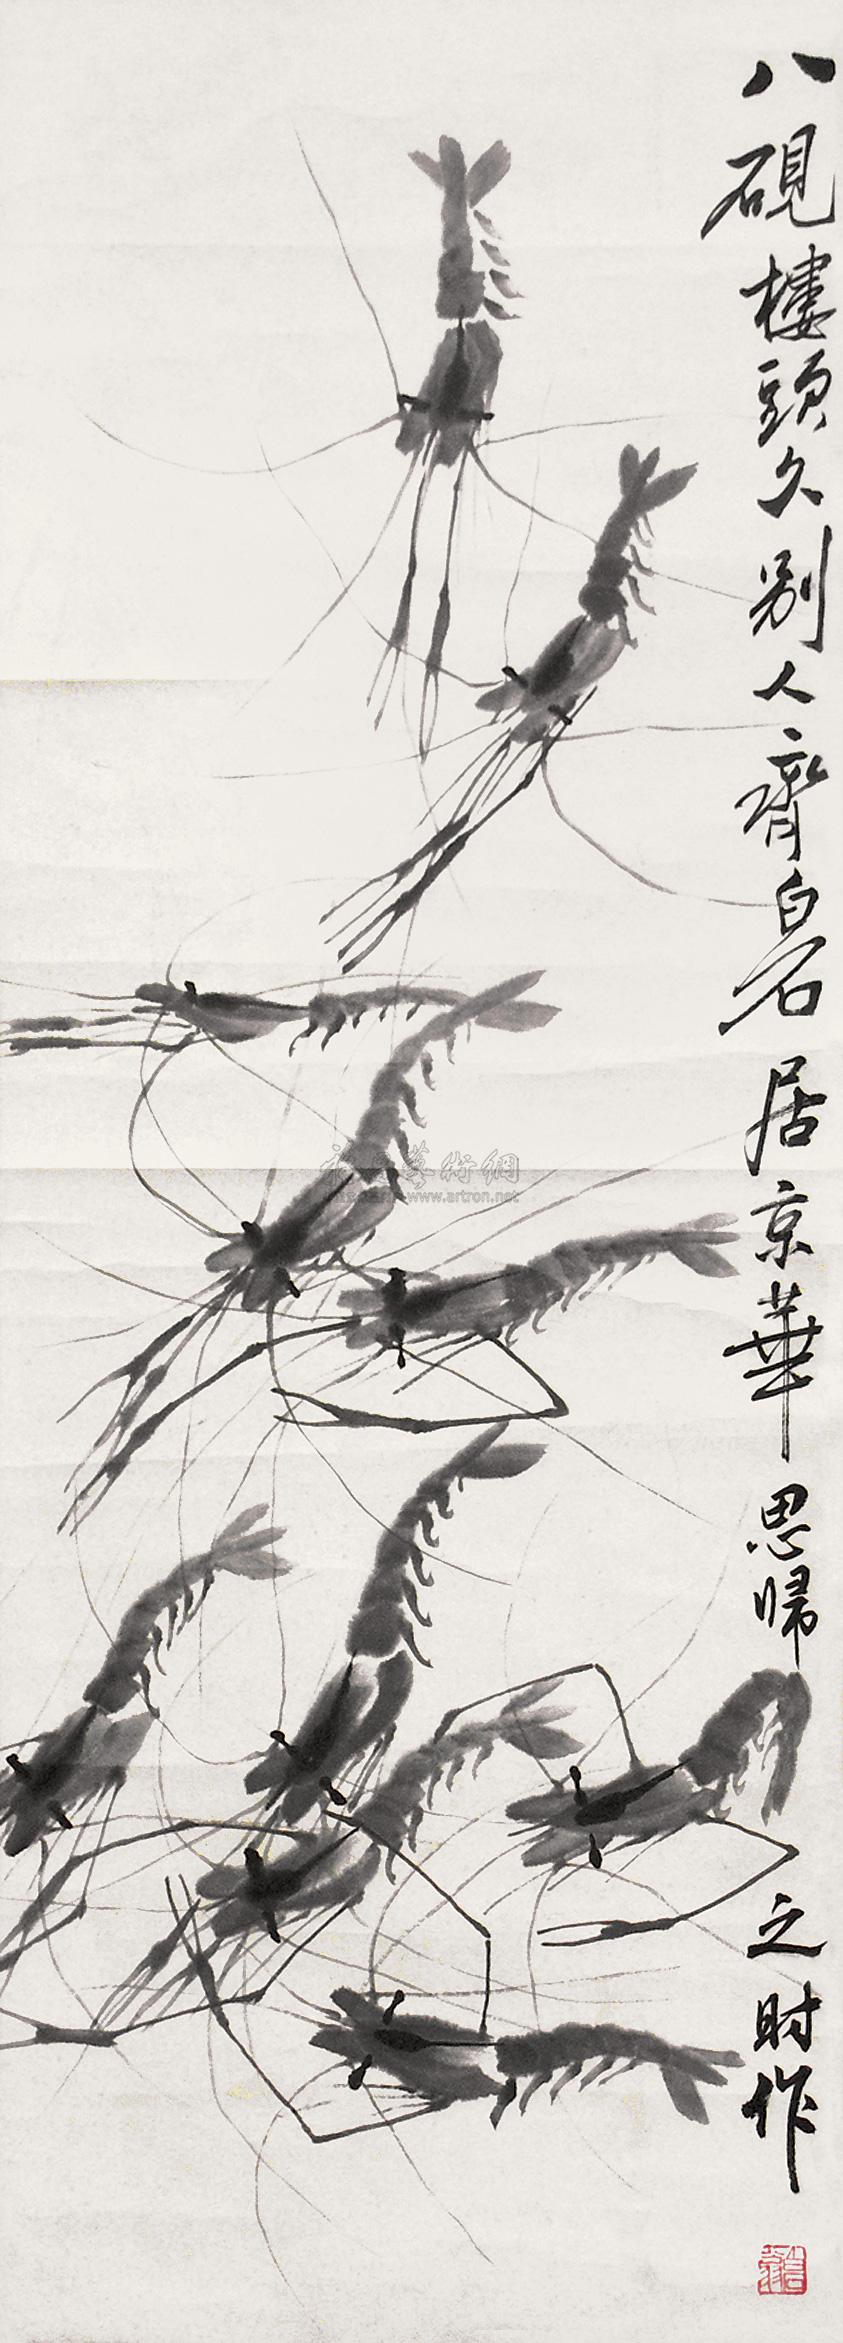 八硯樓頭久别人齊白石居京華思歸之時作
www.artron.net